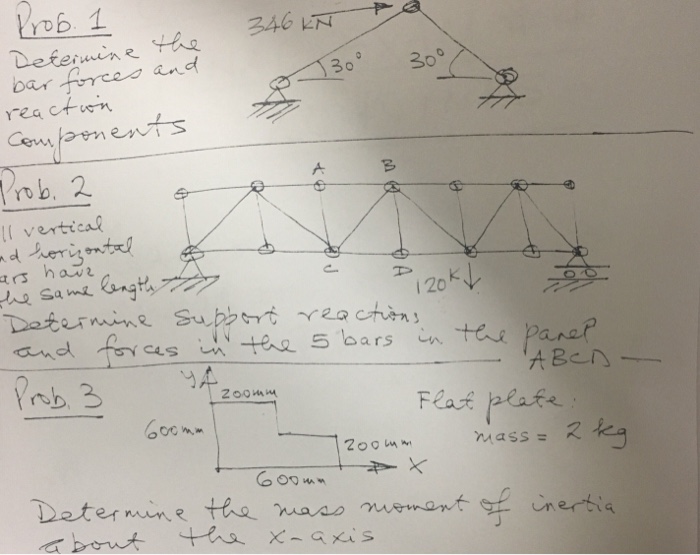 Prob. 1
Determine the
bar forces and
reaction
components
346 KN
30°
30°
Prob. 2
ll vertical
nd horizontal
ars have
the same length
A
B
C
D
120 K
Determine support reactions
and forces in the 5 bars in the panel
ABCD
Prob. 3
Y
200mm
600mm
200mm
X
600mm
Flat plate:
mass = 2 kg
Determine the mass moment of inertia
about the x-axis